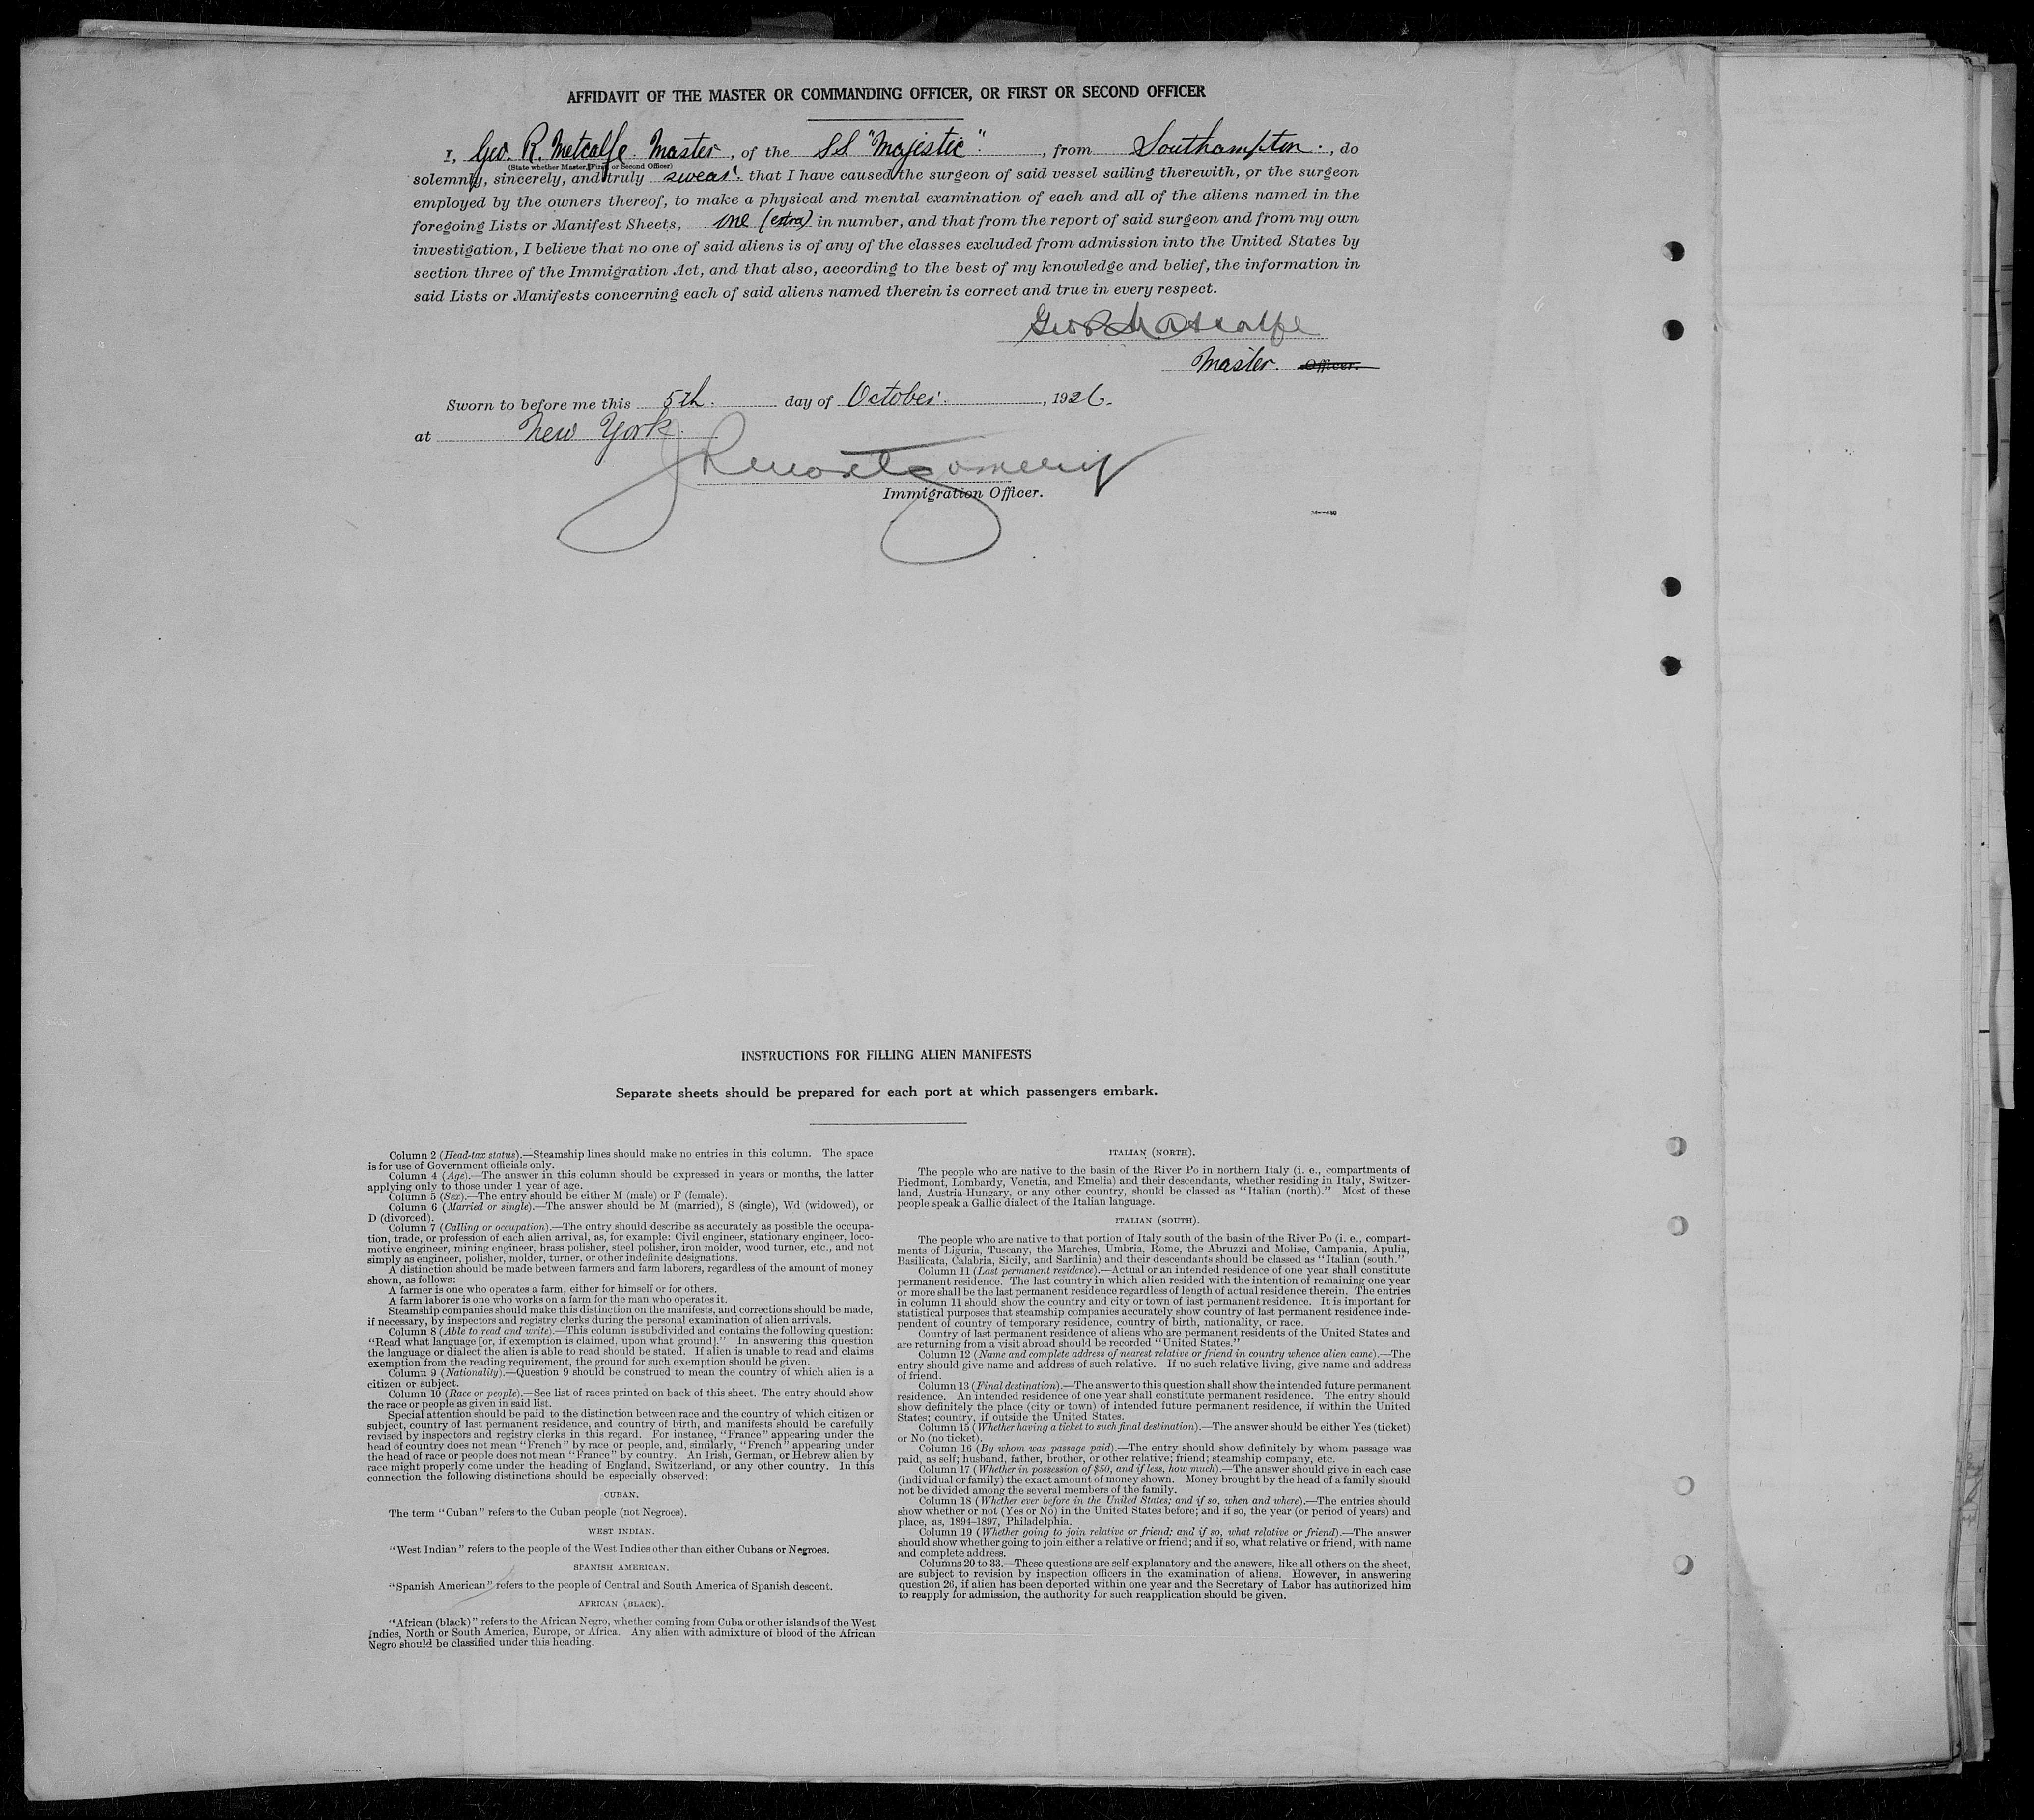 AFFIDAVIT OF THE MASTER OR COMMANDING OFFICER, OR FIRST OR SECOND OFFICER
I, Geo. R. Metcalfe. Master, of the SS "Majestic"., from Southampton., do
(State whether Master, First or Second Officer)
solemnly, sincerely, and truly swear. that I have caused the surgeon of said vessel sailing therewith, or the surgeon
employed by the owners thereof, to make a physical and mental examination of each and all of the aliens named in the
foregoing Lists or Manifest Sheets, one (extra) in number, and that from the report of said surgeon and from my own
investigation, I believe that no one of said aliens is of any of the classes excluded from admission into the United States by
section three of the Immigration Act, and that also, according to the best of my knowledge and belief, the information in
said Lists or Manifests concerning each of said aliens named therein is correct and true in every respect.
Geo R Metcalfe
Master. Officer.
Sworn to before me this 5th. day of October., 1926.
at New York.
J R Montgomery
Immigration Officer.
INSTRUCTIONS FOR FILLING ALIEN MANIFESTS
Separate sheets should be prepared for each port at which passengers embark.
Column 2 (Head-tax status).—Steamship lines should make no entries in this column. The space
is for use of Government officials only.
Column 4 (Age).—The answer in this column should be expressed in years or months, the latter
applying only to those under 1 year of age.
Column 5 (Sex).—The entry should be either M (male) or F (female).
Column 6 (Married or single).—The answer should be M (married), S (single), Wd (widowed), or
D (divorced).
Column 7 (Calling or occupation).—The entry should describe as accurately as possible the occupa-
tion, trade, or profession of each alien arrival, as, for example: Civil engineer, stationary engineer, loco-
motive engineer, mining engineer, brass polisher, steel polisher, iron molder, wood turner, etc., and not
simply as engineer, polisher, molder, turner, or other indefinite designations.
A distinction should be made between farmers and farm laborers, regardless of the amount of money
shown, as follows:
A farmer is one who operates a farm, either for himself or for others.
A farm laborer is one who works on a farm for the man who operates it.
Steamship companies should make this distinction on the manifests, and corrections should be made,
if necessary, by inspectors and registry clerks during the personal examination of alien arrivals.
Column 8 (Able to read and write).—This column is subdivided and contains the following question:
"Read what language [or, if exemption is claimed, upon what ground]." In answering this question
the language or dialect the alien is able to read should be stated. If alien is unable to read and claims
exemption from the reading requirement, the ground for such exemption should be given.
Column 9 (Nationality).—Question 9 should be construed to mean the country of which alien is a
citizen or subject.
Column 10 (Race or people).—See list of races printed on back of this sheet. The entry should show
the race or people as given in said list.
Special attention should be paid to the distinction between race and the country of which citizen or
subject, country of last permanent residence, and country of birth, and manifests should be carefully
revised by inspectors and registry clerks in this regard. For instance, "France" appearing under the
head of country does not mean "French" by race or people, and, similarly, "French" appearing under
the head of race or people does not mean "France" by country. An Irish, German, or Hebrew alien by
race might properly come under the heading of England, Switzerland, or any other country. In this
connection the following distinctions should be especially observed:
CUBAN.
The term "Cuban" refers to the Cuban people (not Negroes).
WEST INDIAN.
"West Indian" refers to the people of the West Indies other than either Cubans or Negroes.
SPANISH AMERICAN.
"Spanish American" refers to the people of Central and South America of Spanish descent.
AFRICAN (BLACK).
"African (black)" refers to the African Negro, whether coming from Cuba or other islands of the West
Indies, North or South America, Europe, or Africa. Any alien with admixture of blood of the African
Negro should be classified under this heading.
ITALIAN (NORTH).
The people who are native to the basin of the River Po in northern Italy (i. e., compartments of
Piedmont, Lombardy, Venetia, and Emelia) and their descendants, whether residing in Italy, Switzer-
land, Austria-Hungary, or any other country, should be classed as "Italian (north)." Most of these
people speak a Gallic dialect of the Italian language.
ITALIAN (SOUTH).
The people who are native to that portion of Italy south of the basin of the River Po (i. e., compart-
ments of Liguria, Tuscany, the Marches, Umbria, Rome, the Abruzzi and Molise, Campania, Apulia,
Basilicata, Calabria, Sicily, and Sardinia) and their descendants should be classed as "Italian (south."
Column 11 (Last permanent residence).—Actual or an intended residence of one year shall constitute
permanent residence. The last country in which alien resided with the intention of remaining one year
or more shall be the last permanent residence regardless of length of actual residence therein. The entries
in column 11 should show the country and city or town of last permanent residence. It is important for
statistical purposes that steamship companies accurately show country of last permanent residence inde-
pendent of country of temporary residence, country of birth, nationality, or race.
Country of last permanent residence of aliens who are permanent residents of the United States and
are returning from a visit abroad should be recorded "United States."
Column 12 (Name and complete address of nearest relative or friend in country whence alien came).—The
entry should give name and address of such relative. If no such relative living, give name and address
of friend.
Column 13 (Final destination).—The answer to this question shall show the intended future permanent
residence. An intended residence of one year shall constitute permanent residence. The entry should
show definitely the place (city or town) of intended future permanent residence, if within the United
States; country, if outside the United States.
Column 15 (Whether having a ticket to such final destination).—The answer should be either Yes (ticket)
or No (no ticket).
Column 16 (By whom was passage paid).—The entry should show definitely by whom passage was
paid, as self; husband, father, brother, or other relative; friend; steamship company, etc.
Column 17 (Whether in possession of $50, and if less, how much).—The answer should give in each case
(individual or family) the exact amount of money shown. Money brought by the head of a family should
not be divided among the several members of the family.
Column 18 (Whether ever before in the United States; and if so, when and where).—The entries should
show whether or not (Yes or No) in the United States before; and if so, the year (or period of years) and
place, as, 1894–1897, Philadelphia.
Column 19 (Whether going to join relative or friend; and if so, what relative or friend).—The answer
should show whether going to join either a relative or friend; and if so, what relative or friend, with name
and complete address.
Columns 20 to 33.—These questions are self-explanatory and the answers, like all others on the sheet,
are subject to revision by inspection officers in the examination of aliens. However, in answering
question 26, if alien has been deported within one year and the Secretary of Labor has authorized him
to reapply for admission, the authority for such reapplication should be given.